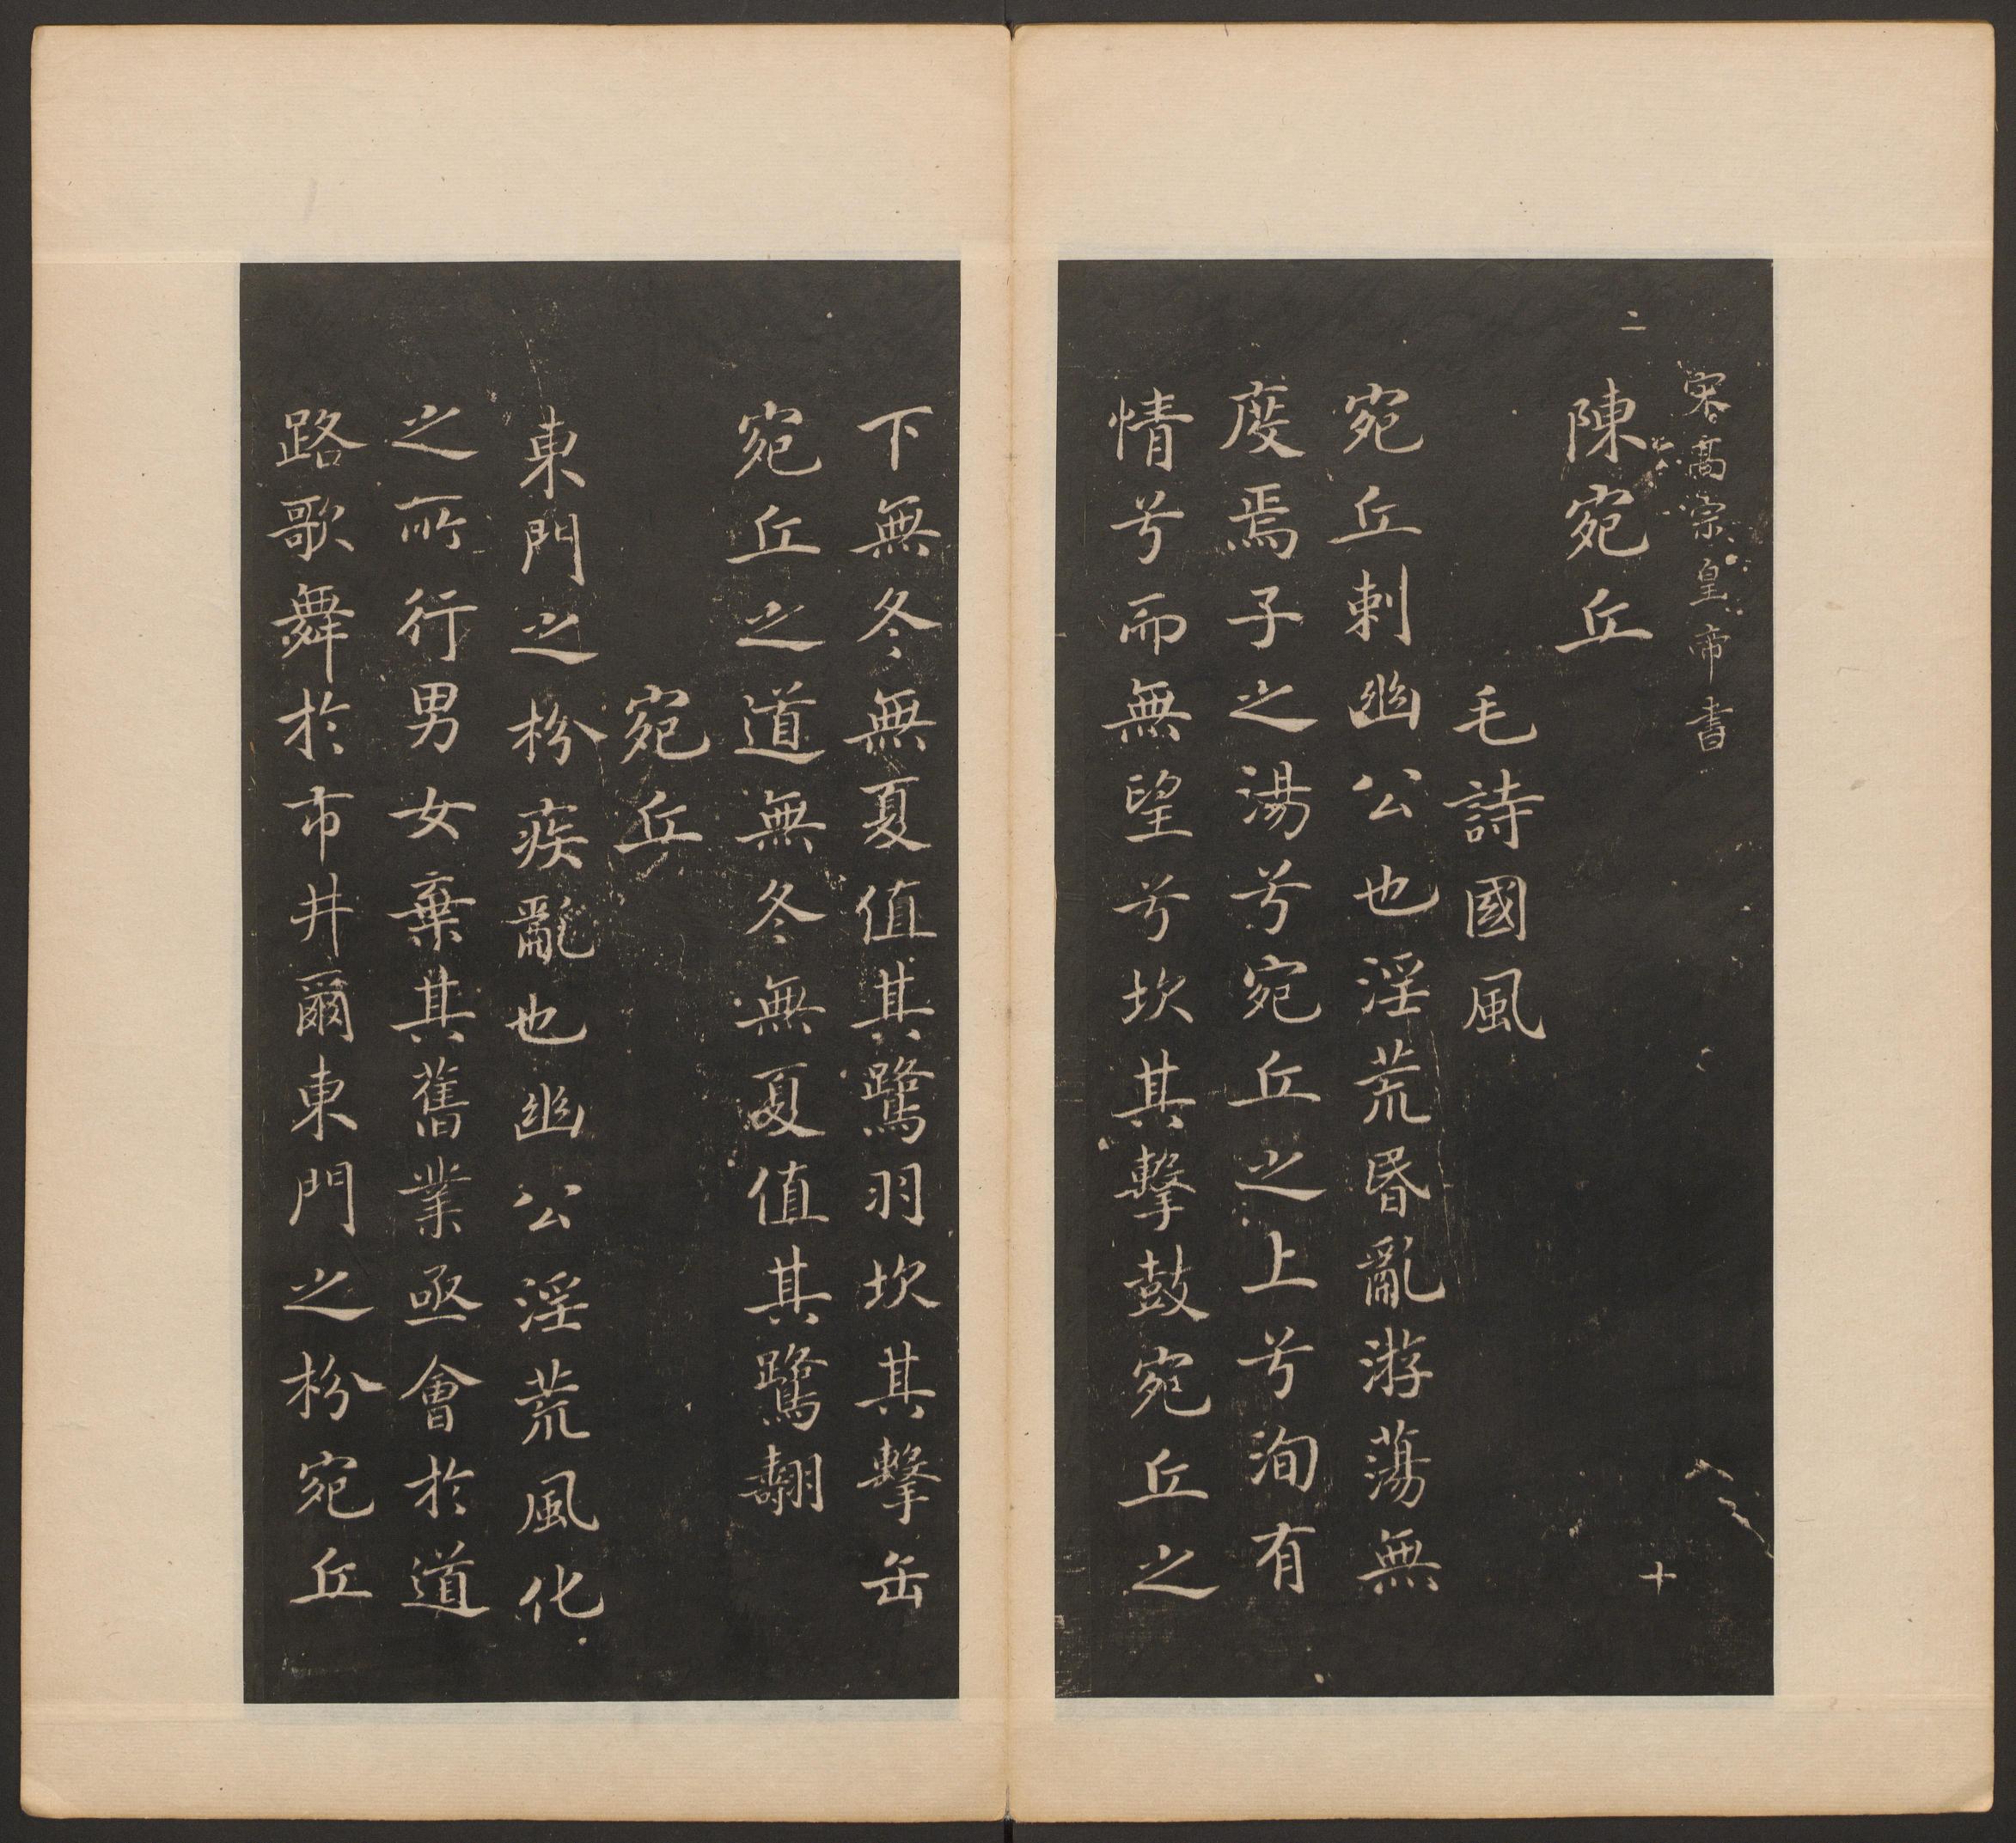 宋高宗皇帝書
二
十
陳宛丘
毛詩國風
宛丘刺幽公也淫荒昏亂游蕩無
度焉子之湯兮宛丘之上兮洵有
情兮而無望兮坎其擊鼓宛丘之
下無冬無夏值其鷺羽坎其擊缶
宛丘之道無冬無夏值其鷺翿
宛丘
東門之枌疾亂也幽公淫荒風化
之所行男女棄其舊業亟會於道
路歌舞於市井爾東門之枌宛丘